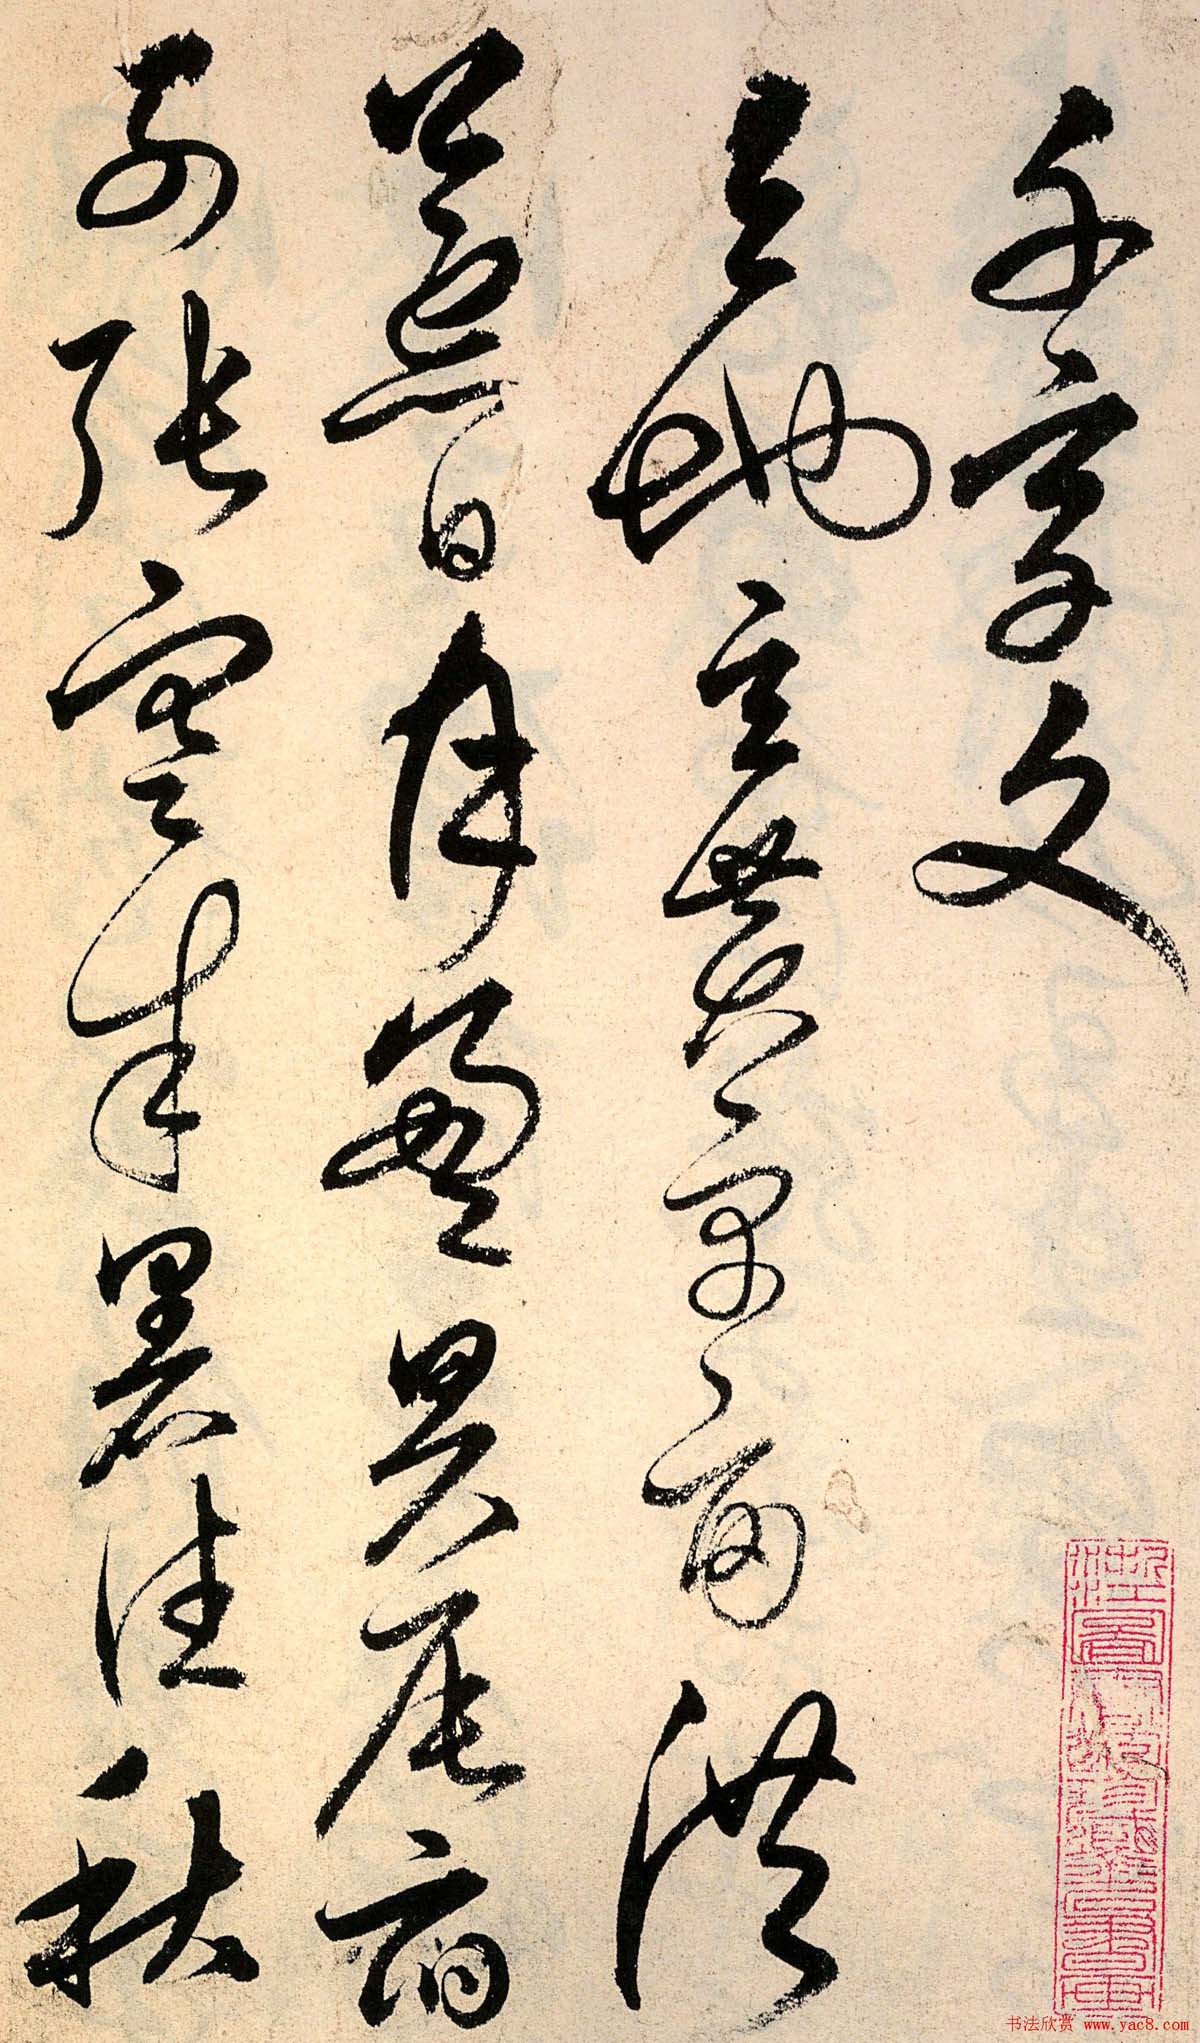 千字文
天地玄黃宇宙洪
荒日月盈昃辰宿
列張寒來暑往秋
书法欣赏 www.yac8.com